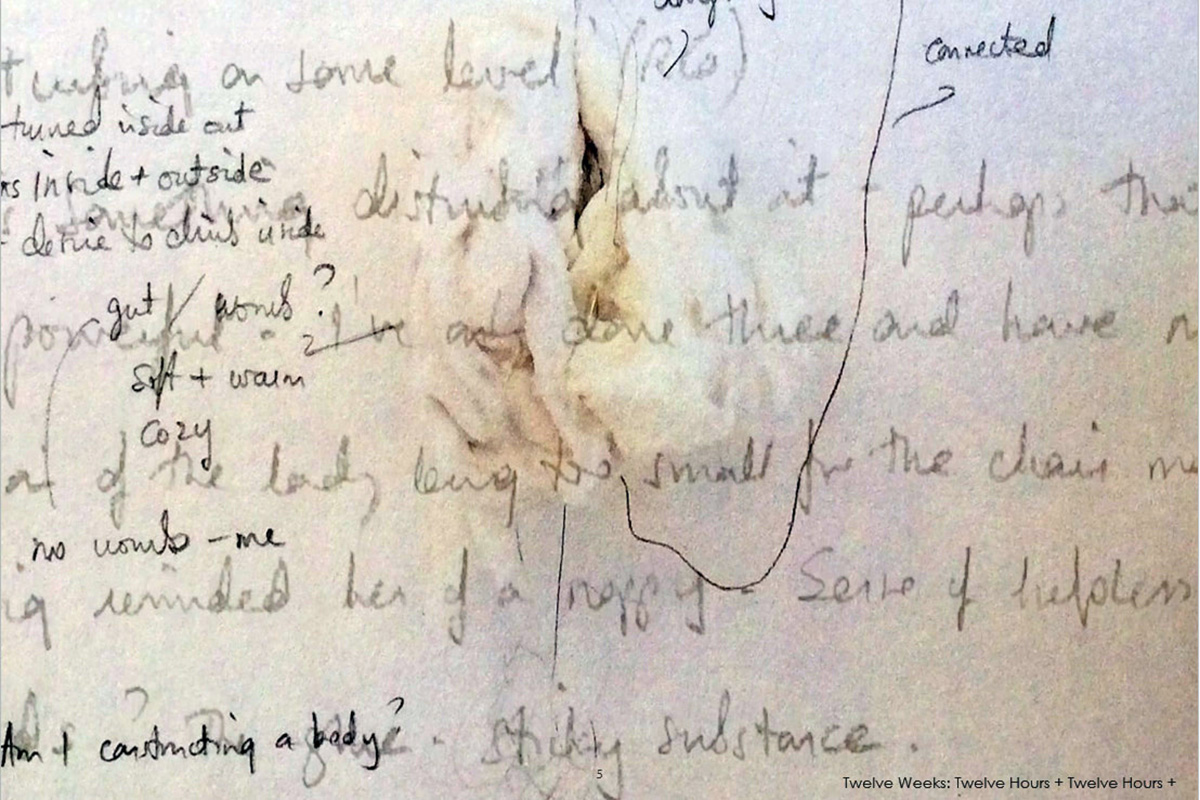 connected
on some level
turned inside out
inside + outside
disturbing about it - perhaps that
desire to climb inside
gut / womb?
powerful - I've only done three and have
soft + warm
cozy
of the lady being too small for the chair
no womb - me
reminded her of a nappy - Sense of helpless
Am I constructing a body?
sticky substance.
5
Twelve Weeks: Twelve Hours + Twelve Hours +